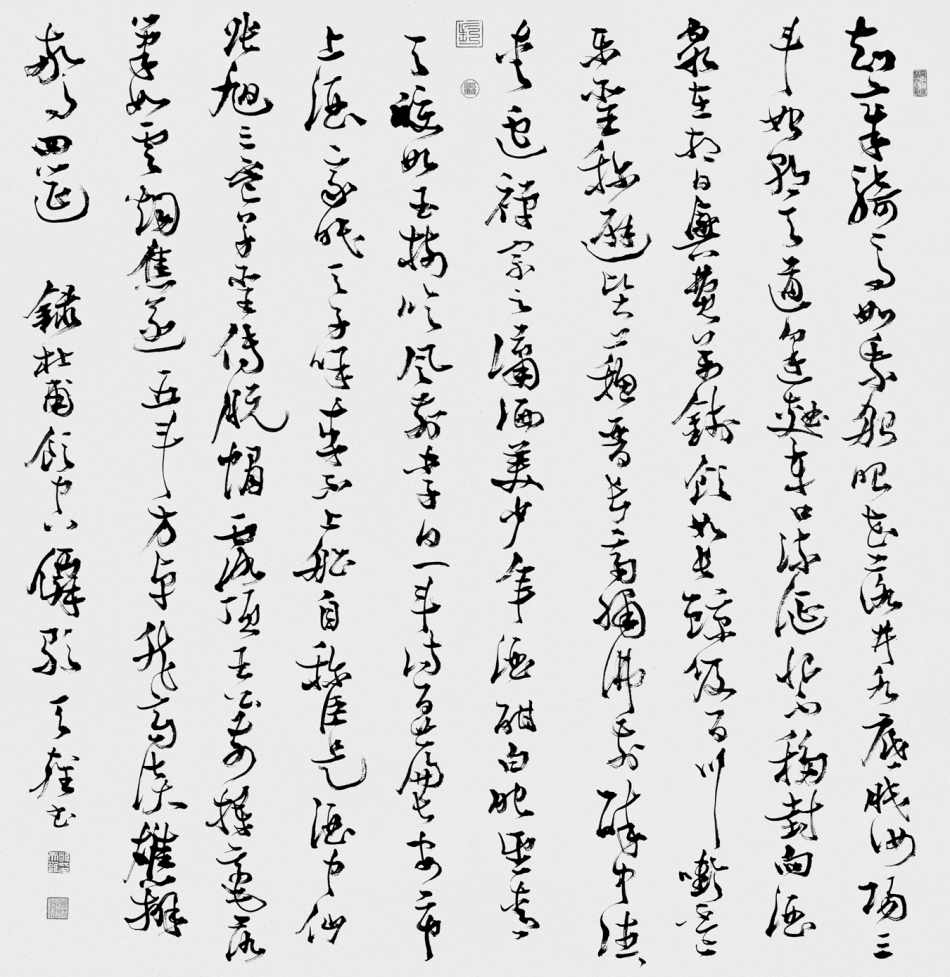 知章騎馬如乘船眼花落井水底眠汝陽三
斗始朝天道逢麴車口流涎恨不移封向酒
泉左相日興費萬錢飲如長鯨吸百川銜盃
樂聖稱避賢蘇晉長齋繡佛前醉中往〻
愛逃禪宗之瀟洒美少年酒酣白眼望青
天皎如玉樹臨風前李白一斗詩百篇長安市
上酒家眠天子呼來不上船自稱臣是酒中仙
張旭三盃草聖傳脫帽露頂王公前揮毫落
筆如雲烟焦遂五斗方卓然高談雄辯
驚四筵 録杜甫飲中八僊歌 天 書